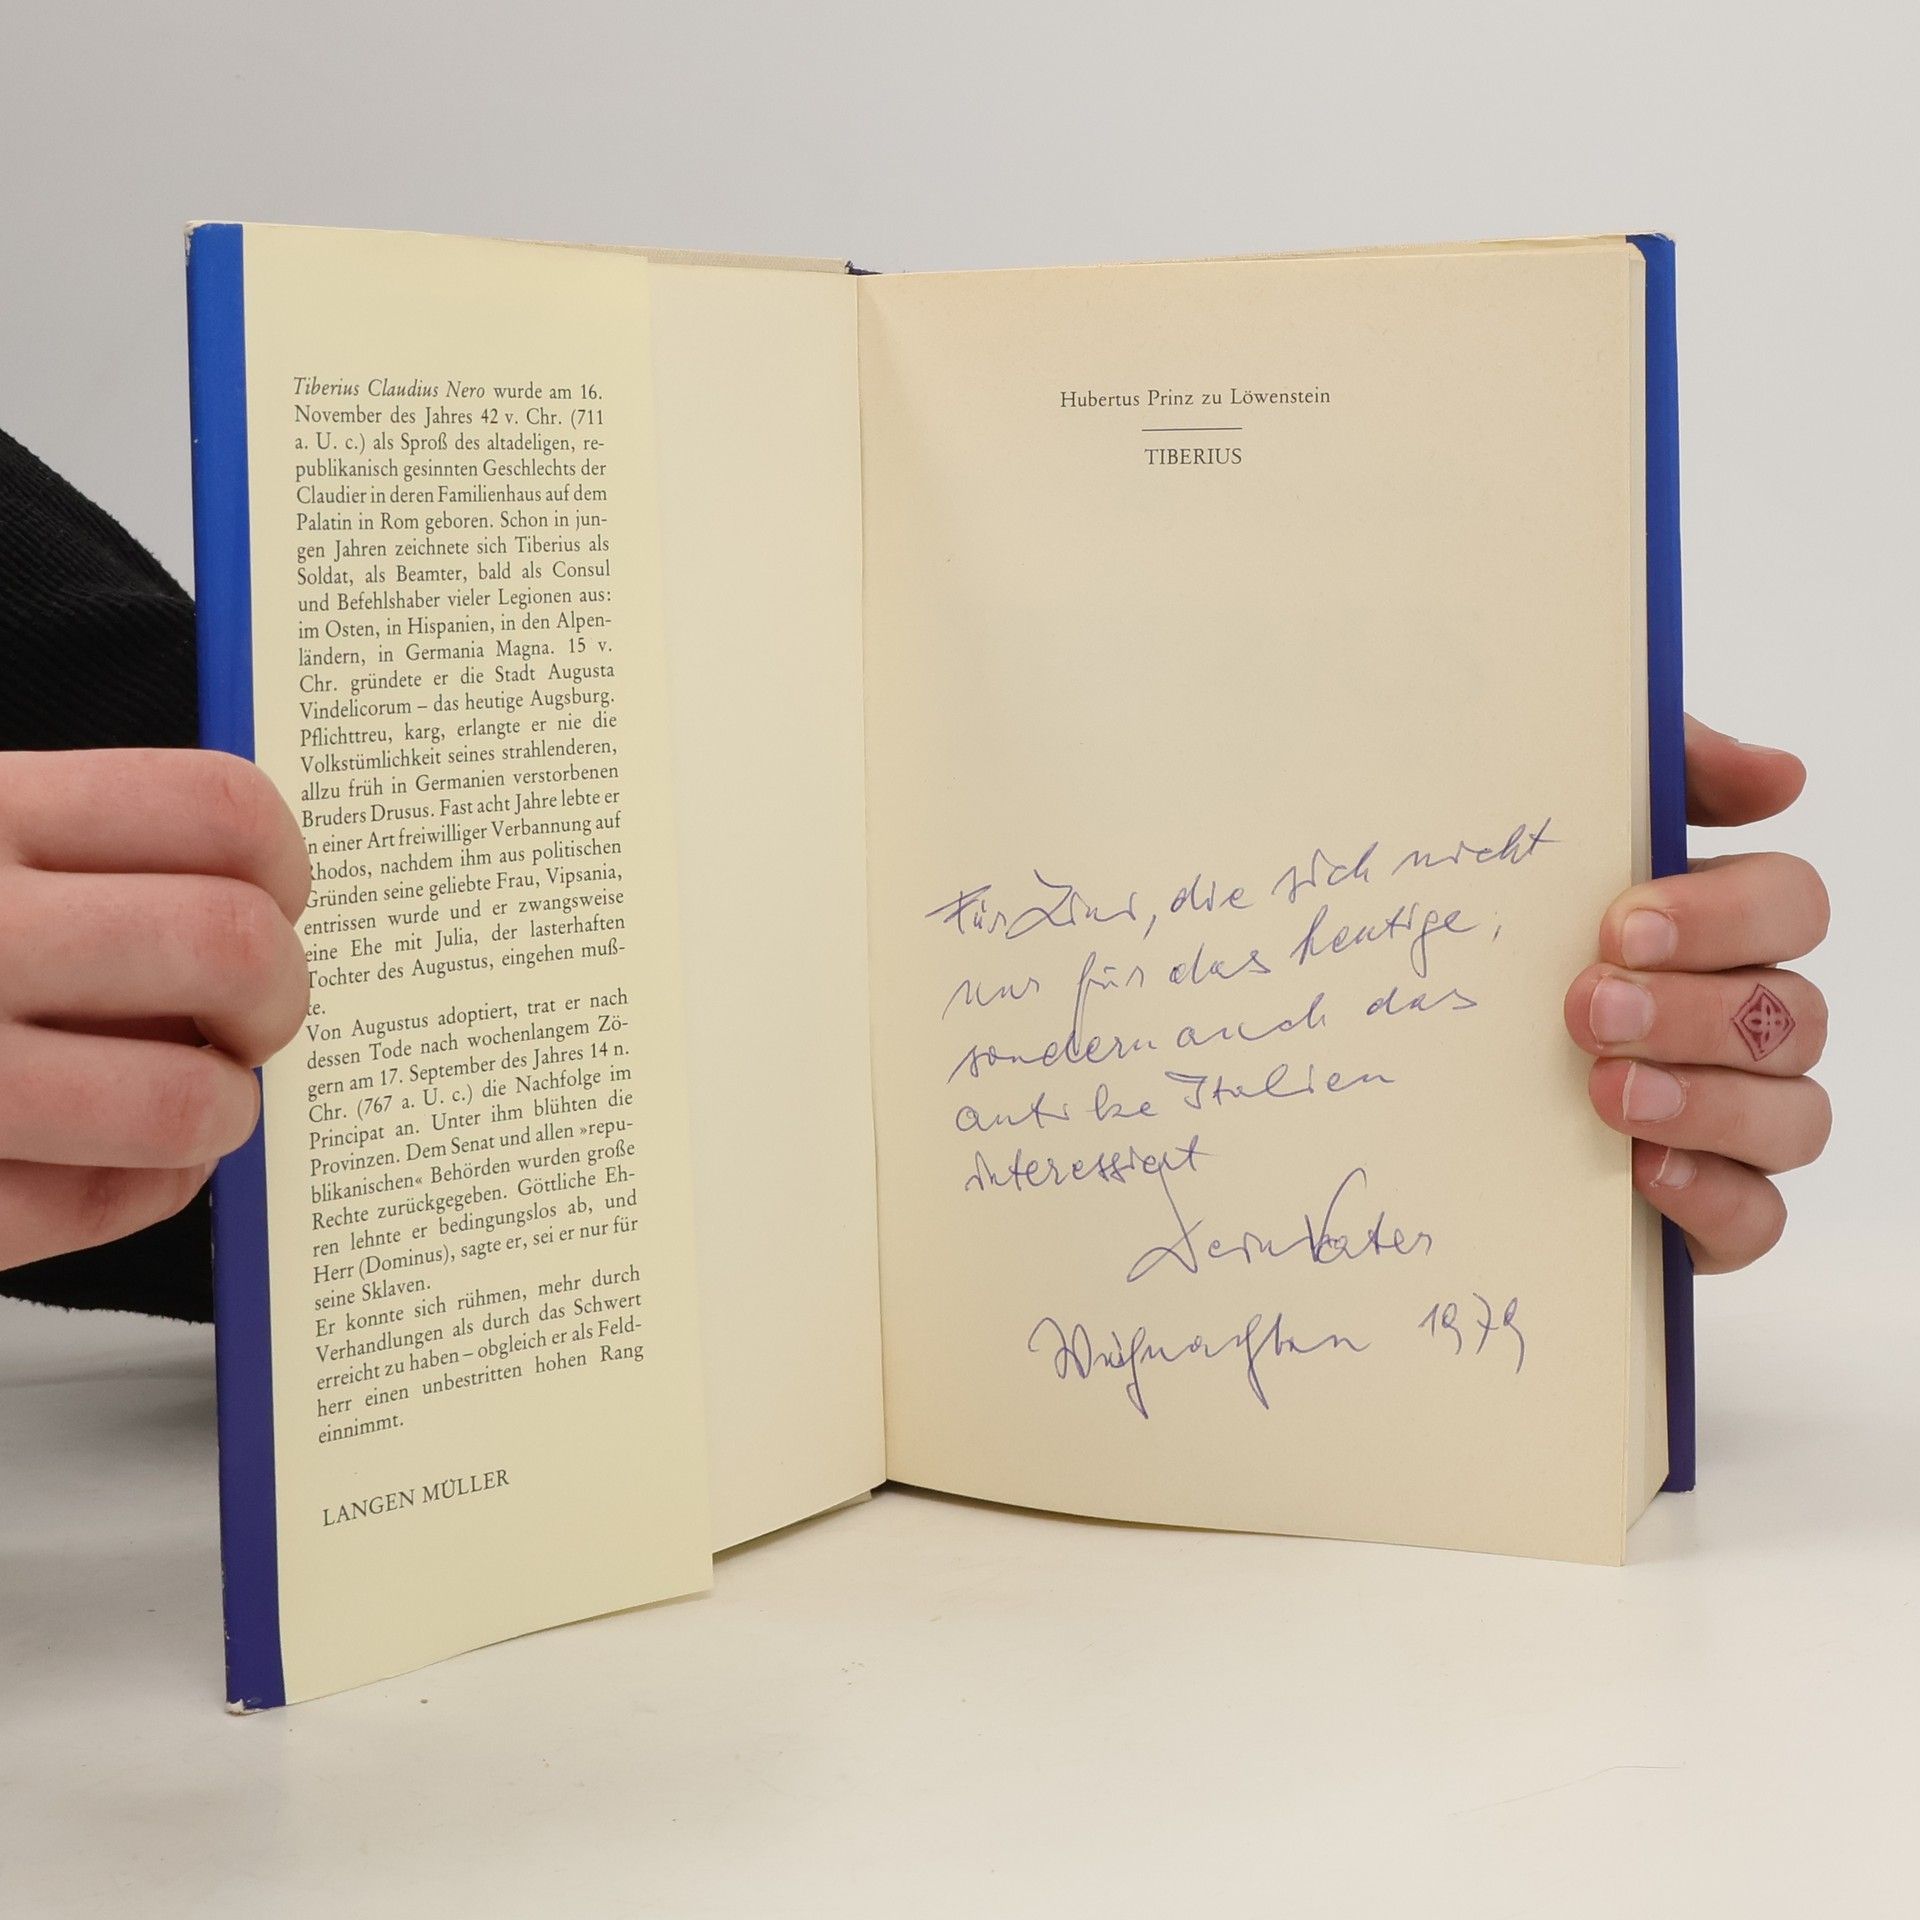 Tiberius Claudius Nero wurde am 16.
November des Jahres 42 v. Chr. (711
a. U. c.) als Sproß des altadeligen, re-
publikanisch gesinnten Geschlechts der
Claudier in deren Familienhaus auf dem
Palatin in Rom geboren. Schon in jun-
gen Jahren zeichnete sich Tiberius als
Soldat, als Beamter, bald als Consul
und Befehlshaber vieler Legionen aus:
im Osten, in Hispanien, in den Alpen-
ländern, in Germania Magna. 15 v.
Chr. gründete er die Stadt Augusta
Vindelicorum – das heutige Augsburg.
Pflichttreu, karg, erlangte er nie die
Volkstümlichkeit seines strahlenderen,
allzu früh in Germanien verstorbenen
Bruders Drusus. Fast acht Jahre lebte er
in einer Art freiwilliger Verbannung auf
Rhodos, nachdem ihm aus politischen
Gründen seine geliebte Frau, Vipsania,
entrissen wurde und er zwangsweise
eine Ehe mit Julia, der lasterhaften
Tochter des Augustus, eingehen muß-
te.
Von Augustus adoptiert, trat er nach
dessen Tode nach wochenlangem Zö-
gern am 17. September des Jahres 14 n.
Chr. (767 a. U. c.) die Nachfolge im
Principat an. Unter ihm blühten die
Provinzen. Dem Senat und allen »repu-
blikanischen« Behörden wurden große
Rechte zurückgegeben. Göttliche Eh-
ren lehnte er bedingungslos ab, und
Herr (Dominus), sagte er, sei er nur für
seine Sklaven.
Er konnte sich rühmen, mehr durch
Verhandlungen als durch das Schwert
erreicht zu haben – obgleich er als Feld-
herr einen unbestritten hohen Rang
einnimmt.
LANGEN MÜLLER
Hubertus Prinz zu Löwenstein
TIBERIUS
Für , die sich nicht
nur für das heutige,
sondern auch das
antike Italien
interessiert
Dein Vater
Weihnachten 1979